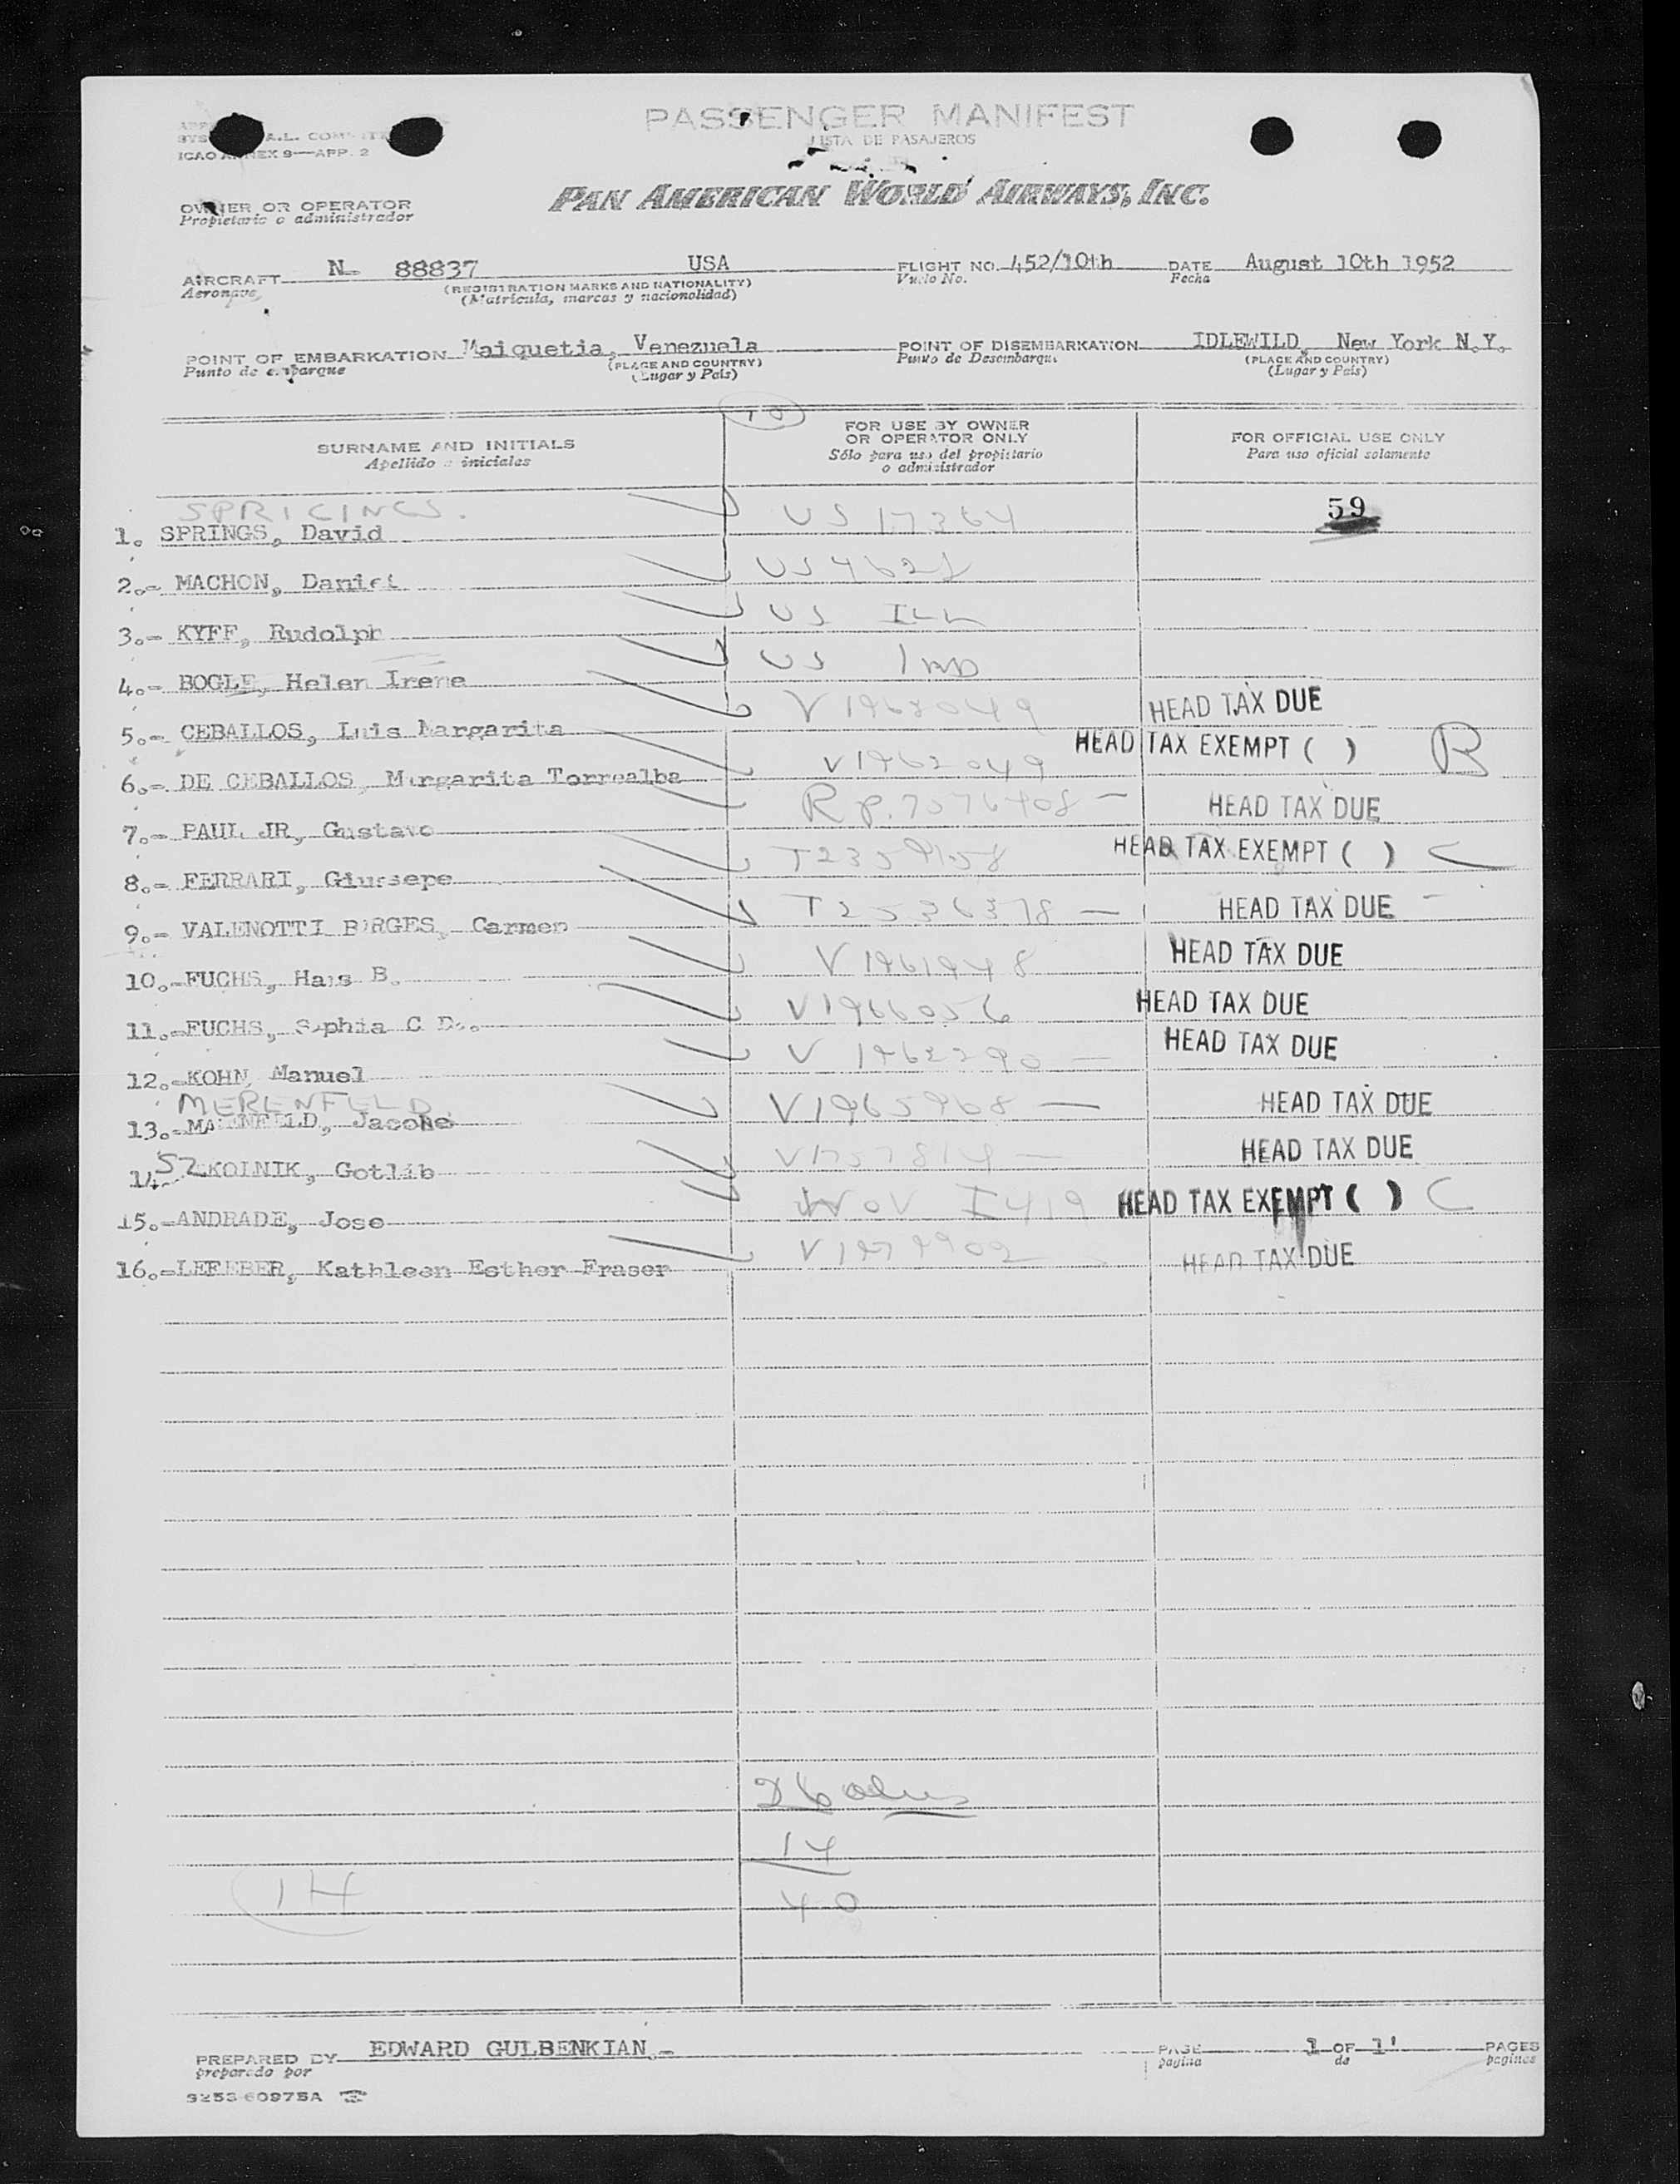 PASSENGER MANIFEST
LISTA DE PASAJEROS
ICAO ANNEX 9—APP. 2
PAN AMERICAN WORLD AIRWAYS, INC.
OWNER OR OPERATOR
Propietario o administrador
AIRCRAFT N- 88837 USA FLIGHT NO. 452/10th DATE August 10th 1952
Aeronave (REGISTRATION MARKS AND NATIONALITY) Vuelo No. Fecha
(Matrícula, marcas y nacionalidad)
POINT OF EMBARKATION Maiquetia, Venezuela POINT OF DISEMBARKATION IDLEWILD, New York N.Y.
Punto de embarque (PLACE AND COUNTRY) Punto de Desembarque (PLACE AND COUNTRY)
(Lugar y País) (Lugar y País)
SURNAME AND INITIALS
Apellido e iniciales
FOR USE BY OWNER
OR OPERATOR ONLY
Sólo para uso del propietario
o administrador
FOR OFFICIAL USE ONLY
Para uso oficial solamente
59
1. SPRINGS, David US 17364
2.- MACHON, Daniel
3.- KYFF, Rudolph US ILL
4.- BOGLE, Helen Irene US IND
5.- CEBALLOS, Luis Margarita HEAD TAX DUE
6.- DE CEBALLOS, Margarita Torrealba V1962049 HEAD TAX EXEMPT ( ) B
7.- PAUL JR, Gustavo HEAD TAX DUE
8.- FERRARI, Giussepe HEAD TAX EXEMPT ( ) C
9.- VALENOTTI BORGES, Carmen T2536378 — HEAD TAX DUE
10.-FUCHS, Hans B. V1961948 HEAD TAX DUE
11.-FUCHS, Sophia C De. V1966056 HEAD TAX DUE
12.-KOHN, Manuel HEAD TAX DUE
MERENFELD
13.-MARENFELD, Jacobo V1965968 — HEAD TAX DUE
14.- SZKOLNIK, Gotlib HEAD TAX DUE
15.-ANDRADE, Jose HEAD TAX EXEMPT ( ) C
16.-LEFEBER, Kathleen Esther Fraser HEAD TAX DUE
26
14
14 40
PREPARED BY EDWARD GULBENKIAN.- PAGE 1 OF 1 PAGES
preparado por pagina de paginas
9253-60975A